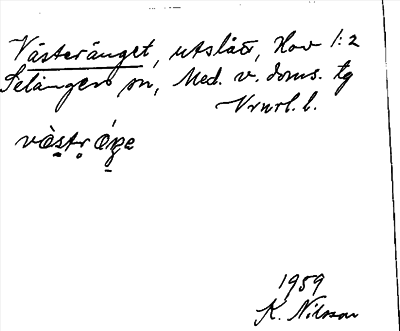 Västeränget, utslått, Hov 1:2
Selångers sn, Med. v. doms. tg
Vrnrl. l.
västräŋe
1959
K. Nilsson